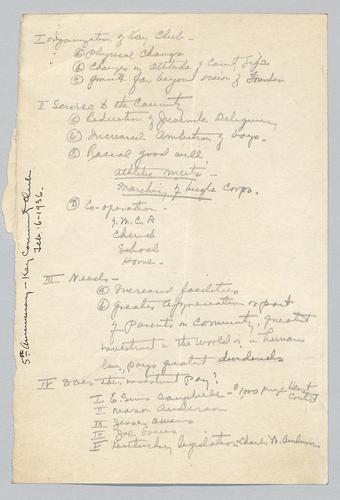 I Organization of Kay Club -
(a) Physical Change
(b) Change in Attitude of County Life
(c) Growth far beyond vision of Founder
II Service to the County
(a) Reduction of Juvenile Delinquency
(b) Increased Ambition of boys.
(c) Racial good will
athletic meets -
Marching of bugle Corps.
(d) Co-operation -
Y.M.C.A
Church
School
Home -
III Needs -
(a) Increased facilities
(b) Greater Appreciation on part
of Parents in Community, greatest
investment in the world is in human
pays greatest dividends
IV Does this investment Pay?
I E. Simms Campbell - $1,000 prize Hearst Contest
II Marian Anderson
III Jessey Owens
IV Joe Louis
V Kentucky Legislature - Charles W. Anderson
5th Anniversary - Kay Community Club
Feb. 6 - 1936.